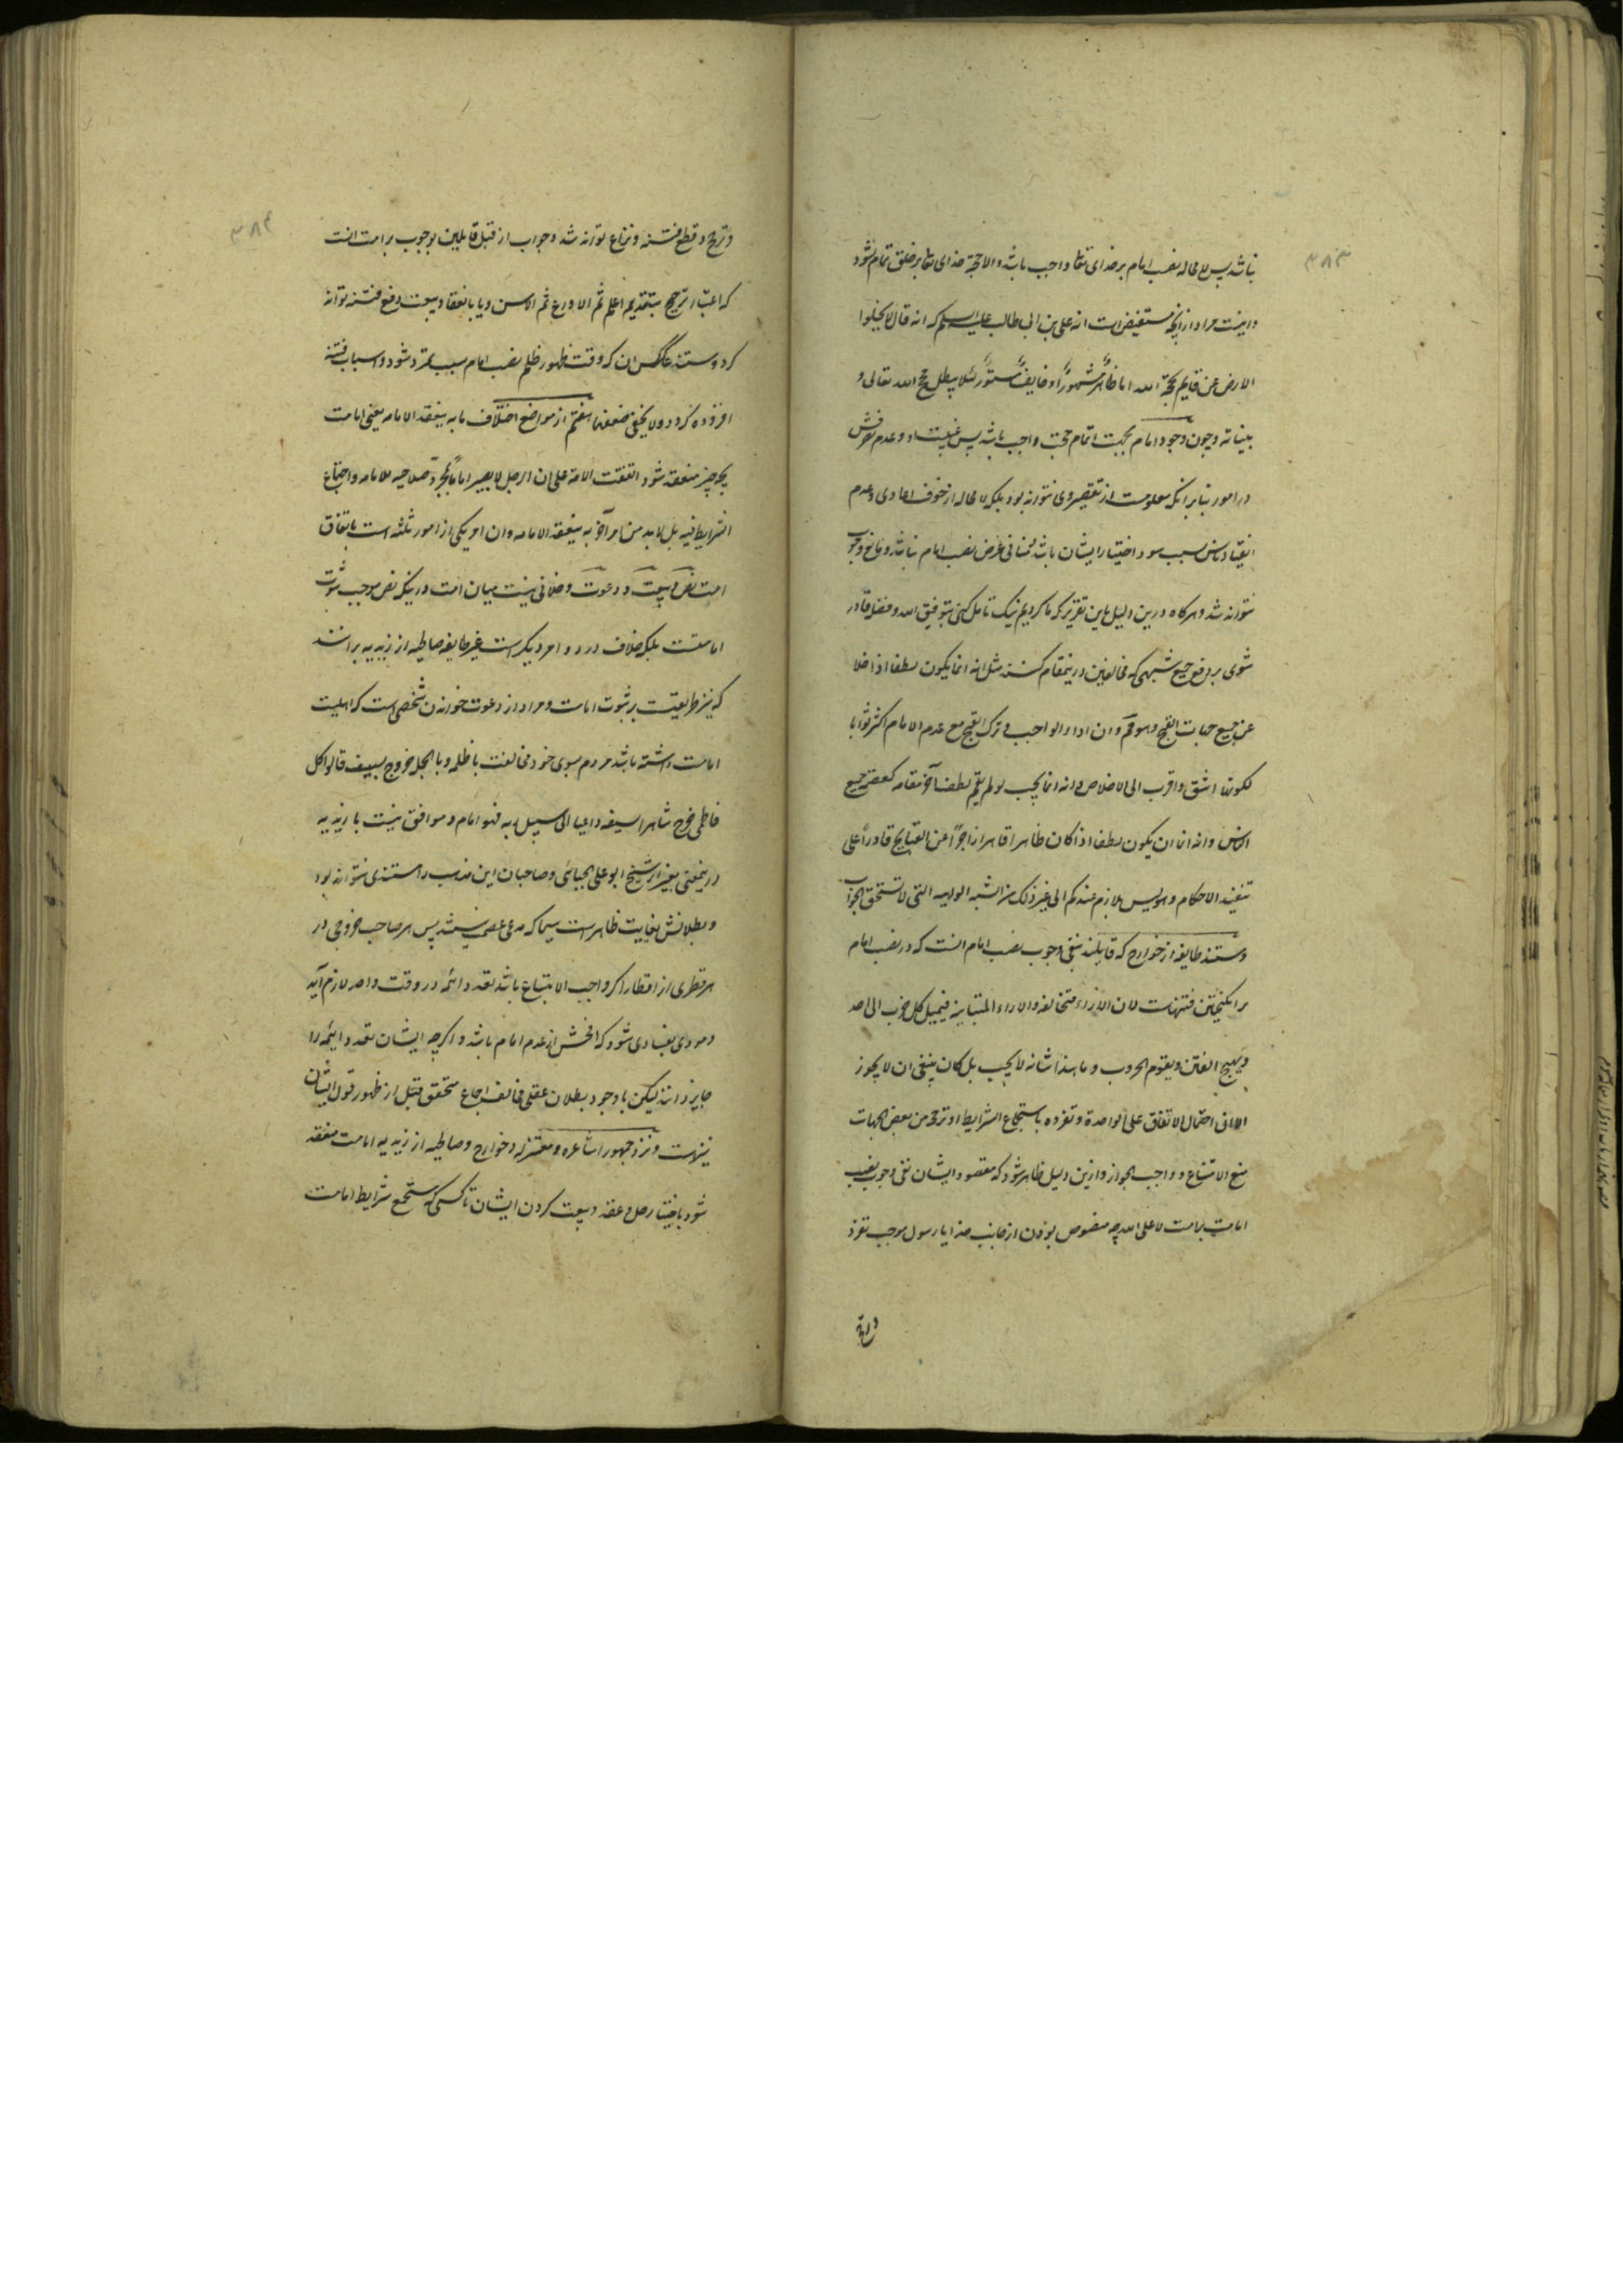 ۳۸۳
نباشد پس لا محاله نصب امام بر خدای تعا واجب باشد والا حجة خدای تعا بر خلق تمام نشود
و اینست مراد از آنچه مستفیض است انه علی بن ابی طالب علیه السلم که انه قال لا یخلوا
الارض عن قایم بحجة الله اما ظاهراً مشهوراً او خایفاً مستوراً لئلا یبطل حجج الله تعالی و
بیناته و چون وجود امام بجهت اتمام حجت واجب باشد پس غیبت او و عدم تصرفش
در امور بنا بر انکه معلومست از تقصیر وی نتواند بود بلکه لا محاله از خوف اعادی و عدم
انقیاد ناس بسبب سوء اختیار ایشان باشد منافی غرض نصب امام نباشد و مانع وجوب
نتواند شد و هرکاه درین دلیل باین تقریر که ما کردیم نیک تامل کنی بتوفیق الله و فضله قادر
شوی بر دفع جمیع شبهی که مخالفین درینمقام کنند مثل انه انما یکون لطفا اذا خلا
عن جمیع جهات القبح وهو مم وان اداء الواجب و ترک القبیح مع عدم الامام اکثر ثوابا
لکونهما اشق واقرب الی الاخلاص وانه انما یجب لو لم یقم لطف آخر مقامه کعصمة جمیع
الناس وانه انما ان یکون لطفا اذا کان ظاهرا قاهرا زاجراً عن القبایح قادراً علی
تنفیذ الاحکام وهو لیس بلازم عندکم الی غیر ذلک من الشبه الواهیه التی لا تستحق الجواب
و مستند طایفه از خوارج که قایلند بنفی وجوب نصب امام انست که در نصب امام
برانکیختن فتنهاست لان الاراء متخالفه والاراء المتباینه فیمیل کل حزب الی احد
و یهیج الفتن و یقوم الحروب و ما هذا شانه لا یجب بل کان ینبغی ان لا یجوز
الا ان احتمال الاتفاق علی الواحدة و تفرده باستجماع الشرایط او ترجحه من بعض الجهات
منع الامتناع و واجب الجواز و ازین دلیل ظاهر شود که مقصود ایشان نفی وجوب نصب
امامت بر امت لا علی الله چه منصوص بودن از جانب خدا یا رسول موجب تفرد
و ترجح
۳۸۴
و ترجح و قطع فتنه و نزاع تواند شد و جواب از قبل قایلین بوجوب بر امت انست
که اعتبار ترجیح بتقدیم اعلم ثم الاورع ثم الاسن و یا بانعقاد بیعت دفع فتنه تواند
کرد و مستند عاکسان که وقت ظهور ظلم نصب امام سبب تمرد شود و اسباب فتنه
افزوده کردد ولا یخفی ضعفها هفتم از مواضع اختلاف ما به ینعقد الامامه یعنی امامت
بچه چیز منعقد شود اتفقت الامة علی ان الرجل لا یصیر اماماً بمجرد صلاحیه للامامه و اجتماع
الشرایط فیه بل لابد من امر آخر به ینعقد الامامه و ان امر یکی از امور ثلثه است باتفاق
امت نص و بیعت و دعوت و خلافی نیست میان امت درینکه نص موجب ثبوت
امامتست بلکه خلاف در دو امر دیکر است غیر طایفه صالحیه از زیدیه بر انند
که نیز طریقیست بر ثبوت امامت و مراد از دعوت خواندن شخصی است که اهلیت
امامت داشته باشد مردم بسوی خود و مخالفت با ظلمه و بالجمله خروج بسیف قالوا کل
فاطمی خرج شاهرا سیفه داعیا الی سبیل ربه فهو امام و موافق نیست با زیدیه
درینمعنی بغیر از شیخ ابو علی الجبائی و صاحبان این مذهب را مستندی نتواند بود
و بطلانش بغایت ظاهر است سیما که مدعی عصمت نیستند پس هر صاحب خروجی در
هر قطری از اقطار اکر واجب الاتباع باشد تعدد ائمه در وقت واحد لازم آید
و مودی بفسادی شود که افحش از عدم امام باشد و اکرچه ایشان تعدد ایمه را
جایز دانند لیکن باوجود بطلان عقلی مخالف اجماع متحقق قبل از ظهور قول ایشان
نیز هست و نزد جمهور اشاعره و معتزله و خوارج و صالحیه از زیدیه امامت منعقد
شود باختیار حل و عقد و بیعت کردن ایشان با کسی که مستجمع شرایط امامت